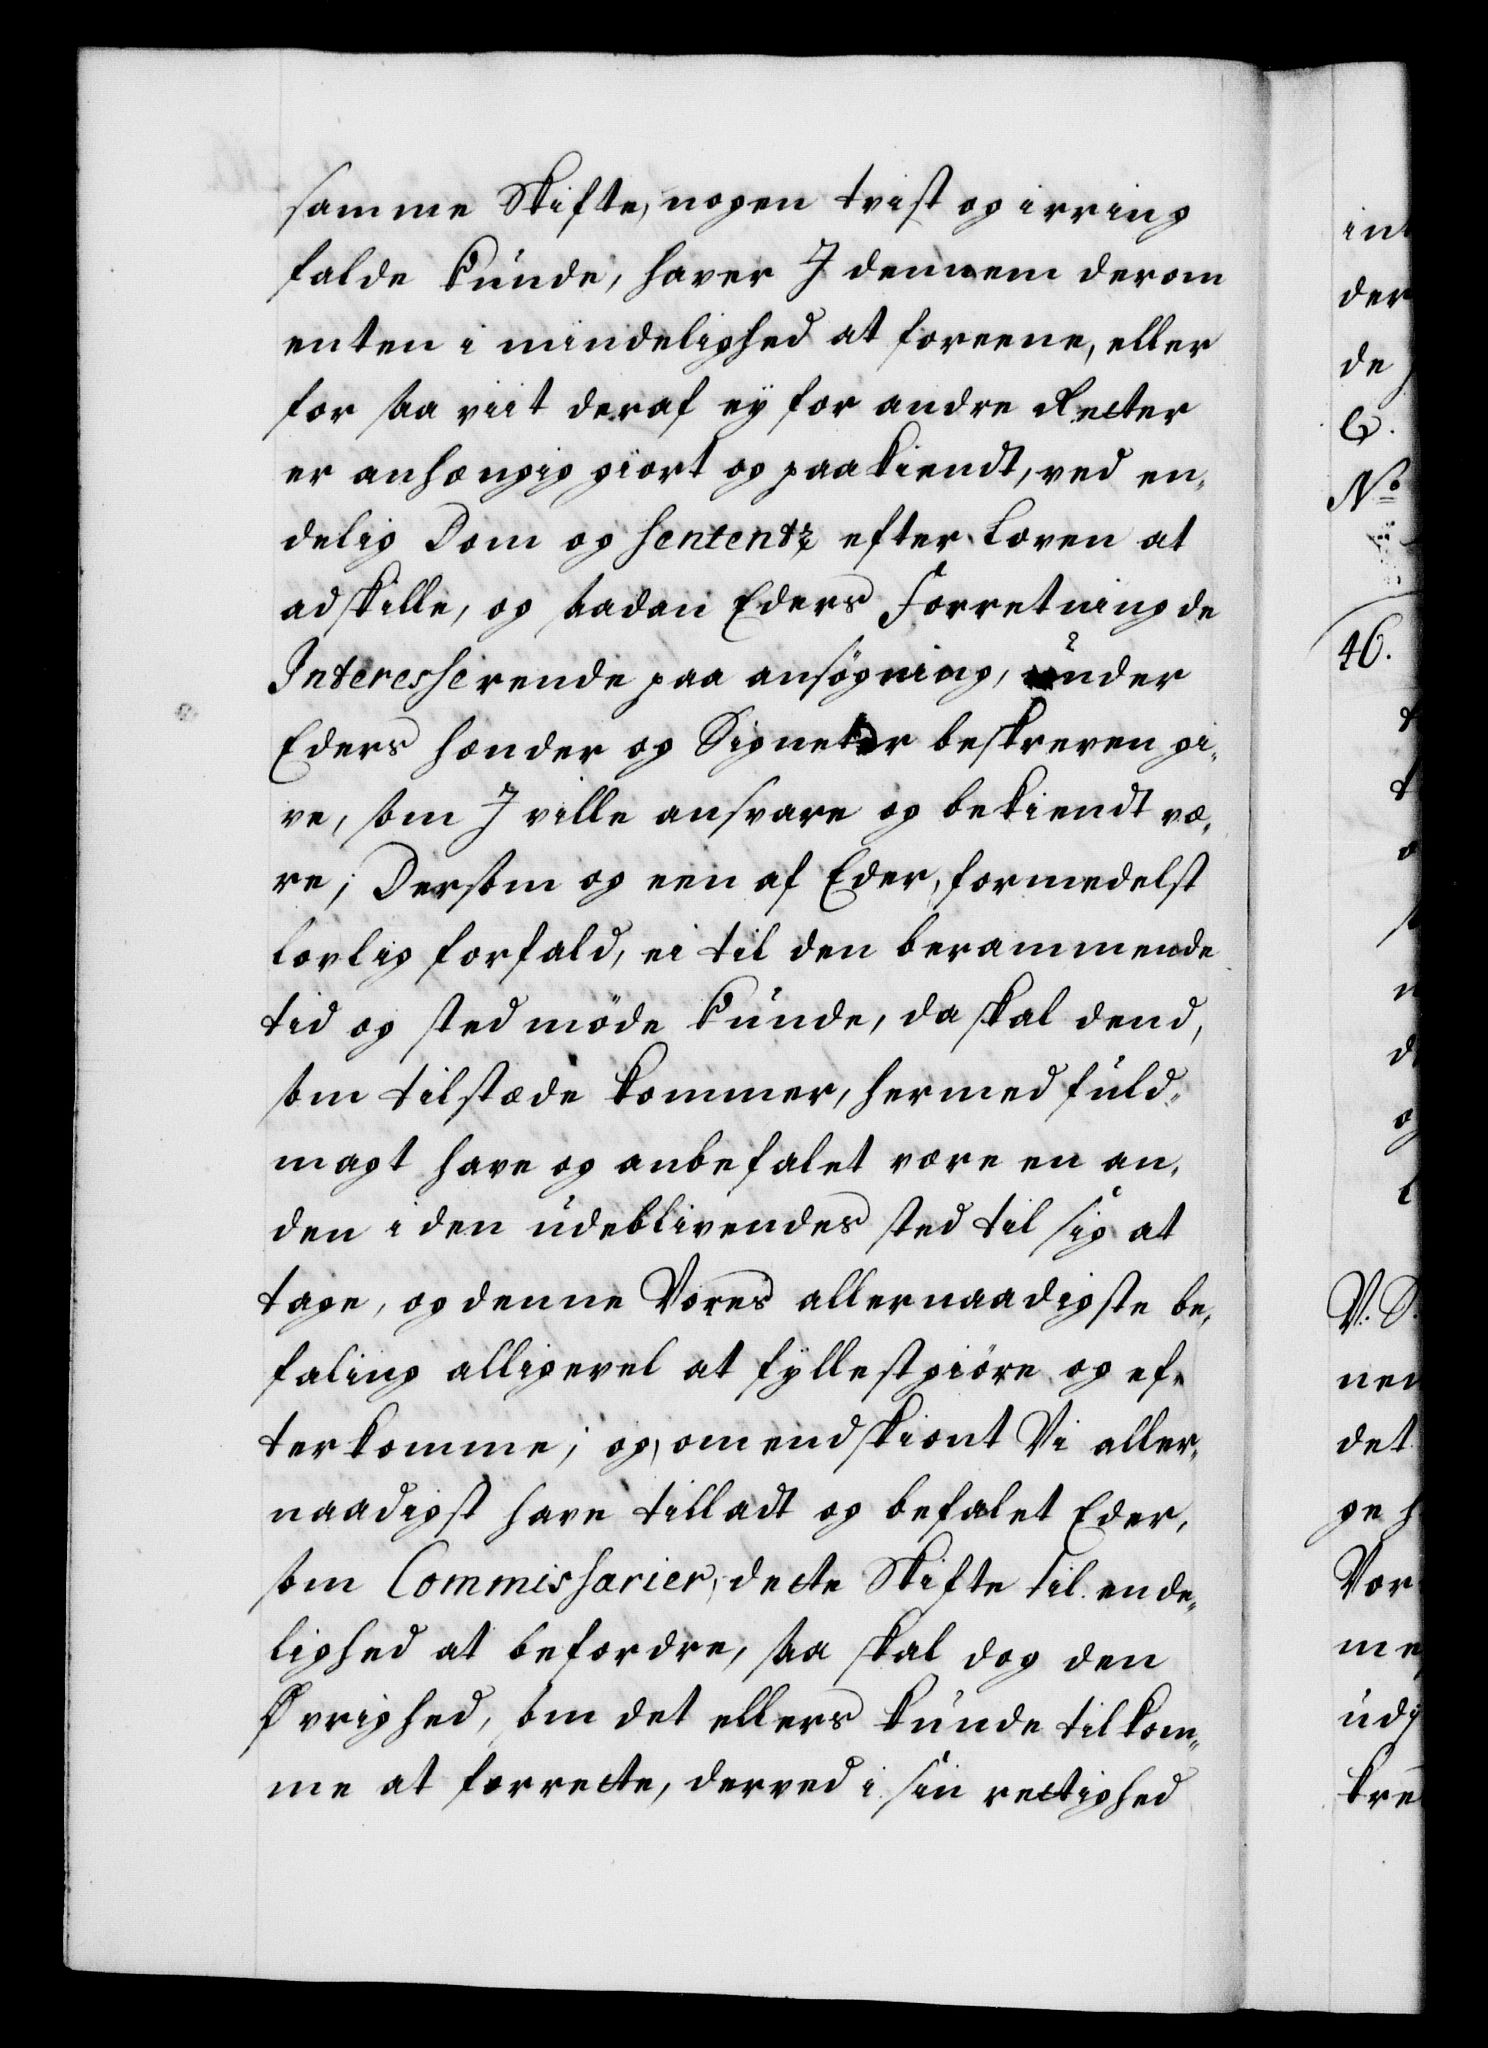 samme Skifte, nogen tvist og irring
falde kunde, haver I dennem derom
enten i mindelighed at foreene, eller
for saa viit deraf ey for andre Retter
er anhængig giort og paakiendt, ved en„
delig Dom og Sententz efter Loven at
adskille, og saadan Eders Forretning de
Interesserende paa ansøgning, under
Eders hænder og Signeter beskreven gi„
ve, som I ville ansvare og bekiendt væ„
re; Dersom og een af Eder, formedelst
lovlig forfald, ei til den berammende
tid og sted møde kunde, da skal dend,
som tilstæde kommer, hermed fuld„
magt have og anbefalet være en an„
den i den udeblivendes sted til sig at
tage, og denne Vores allernaadigste be„
faling alligevel at fyllestgiøre og ef„
terkomme; og, omendskiønt Vi aller„
naadigst have tilladt og befalet Eder,
som Commissarier, dette Skifte til ende„
lighed at befordre, saa skal dog den
Øvrighed, som det ellers kunde tilkom„
me at forrette, derved i sin rettighed
int
der
de
No
46.
V. S.
det
ge h
Vor
me
udg
kre